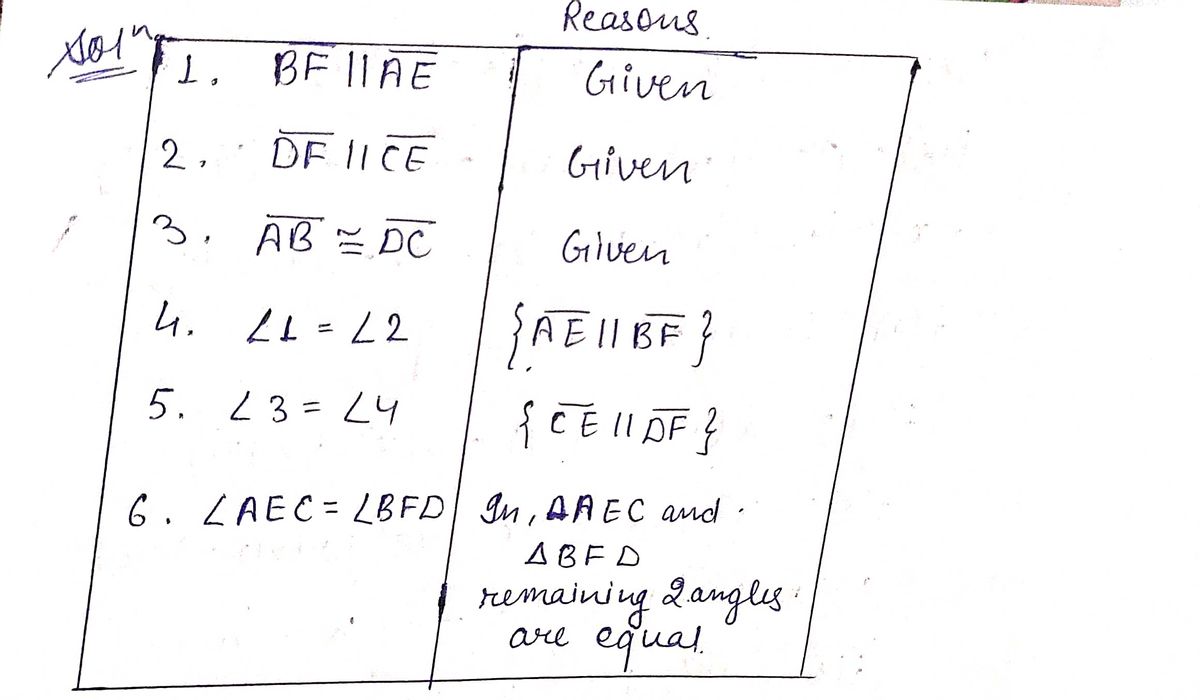 Solⁿ
Reasons.
1. B̅F̅ || A̅E̅ Given
2. D̅F̅ || C̅E̅ Given
3. A̅B̅ ≅ D̅C̅ Given
4. ∠1 = ∠2 {A̅E̅ || B̅F̅}
5. ∠3 = ∠4 {C̅E̅ || D̅F̅}
6. ∠AEC = ∠BFD In, ΔAEC and
ΔBFD
remaining 2 angles
are equal.